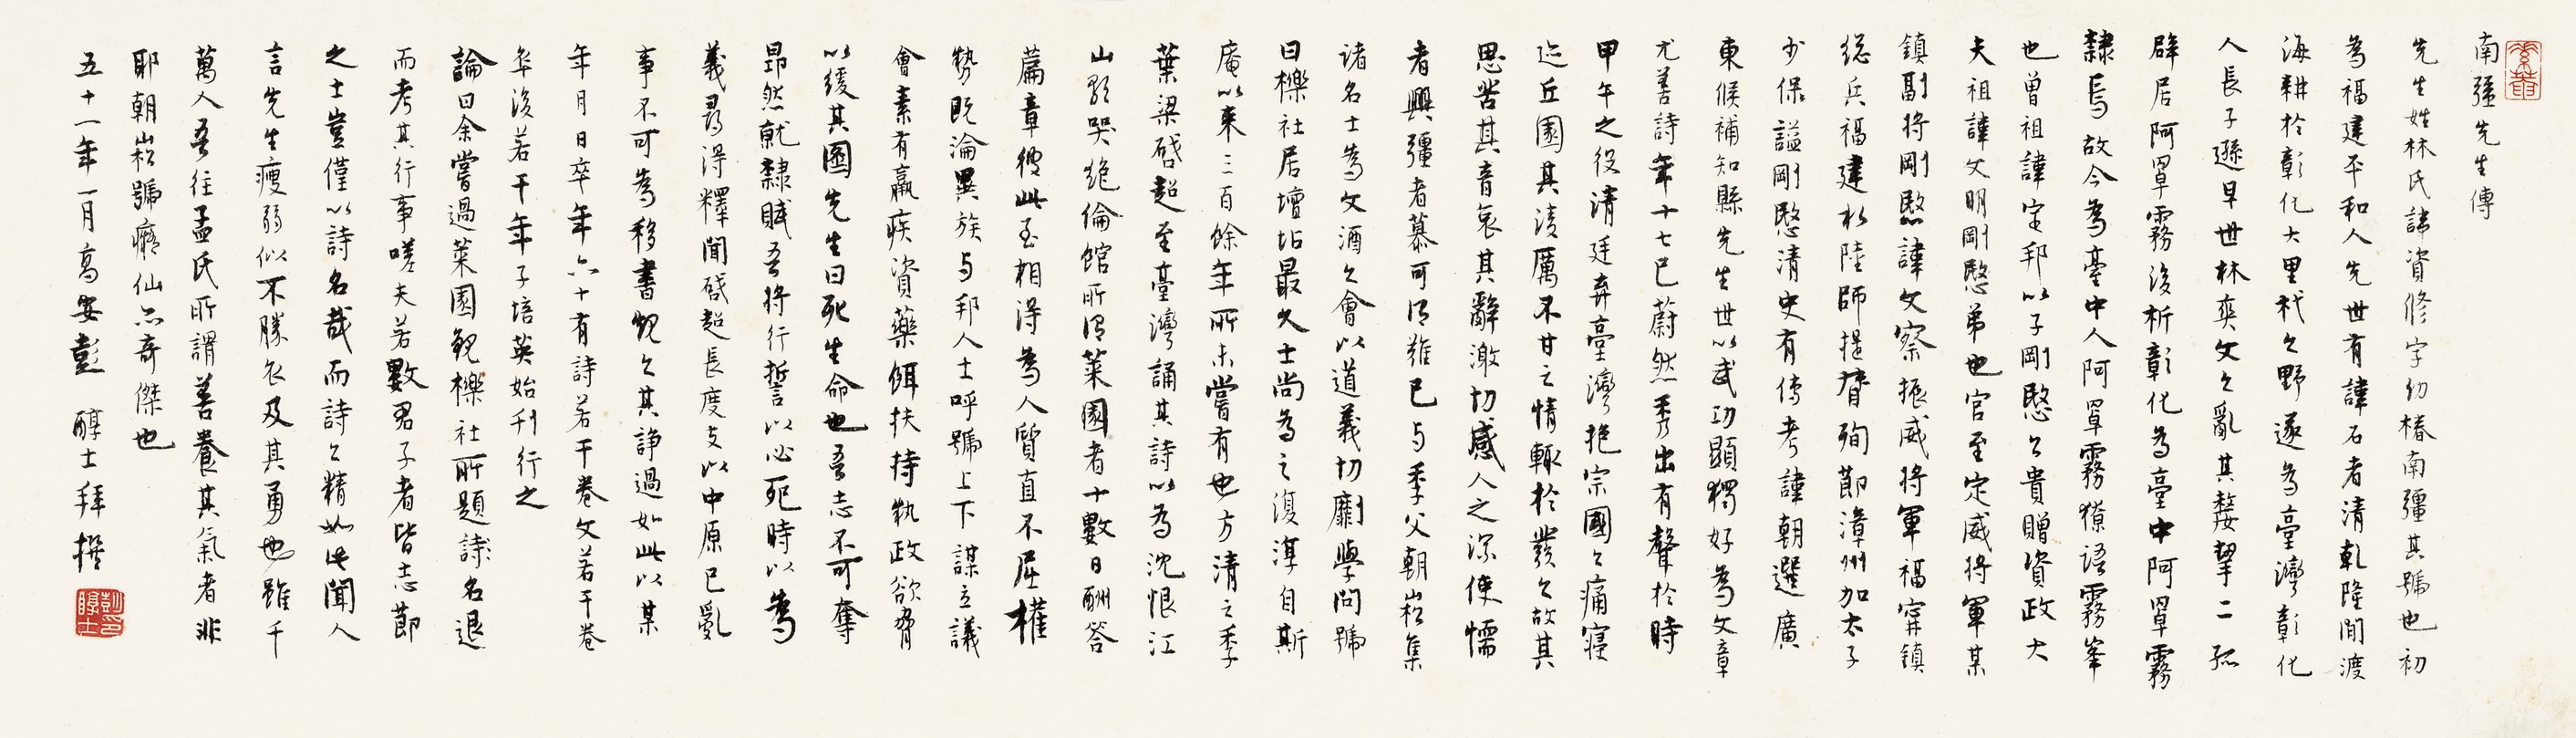 南彊先生傳
先生姓林氏諱資修字幼椿南彊其號也初
為福建平和人先世有諱石者清乾隆間渡
海耕於彰化大里杙之野遂為臺灣彰化
人長子遜早世林爽文之亂其嫠挈二孤
辟居阿罩霧後析彰化為臺中阿罩霧
隸焉故今為臺中人阿罩霧獠語霧峯
也曾祖諱定邦以子剛愍公貴贈資政大
夫祖諱文明剛愍弟也官至定威將軍某
鎮副將剛愍諱文察振威將軍福寧鎮
總兵福建水陸師提督殉節漳州加太子
少保謚剛愍清史有傳考諱朝選廣
東候補知縣先生世以武功顯獨好為文章
尤善詩年十七已蔚然秀出有聲於時
甲午之役清廷弃臺灣抱宗國之痛寢
迹丘園其淸厲不甘之情輒於發之故其
思苦其音哀其辭激切感人之深使懦
者興彊者慕可謂難已与季父朝崧集
诸名士為文酒之會以道義切劘學問號
曰櫟社居壇坫最久士尚為之復淳自斯
庵以来三百餘年所未嘗有也方清之季
葉梁啓超至臺灣誦其詩以為沈恨江
山歌哭絶倫館所謂萊園者十數日酬答
篇章彼此至相得為人質直不屈權
勢既淪異族与邦人士呼號上下謀立議
會素有羸疾資藥餌扶持執政欲脅
以緩其圖先生曰死生命也吾志不可奪
昻然就隸賊吾將行誓以必死時以為
義尋得釋聞啓超長度支以中原已亂
事不可為移書規之其諍過如此以某
年月日卒年六十有詩若干卷文若干卷
卒後若干年子培英始刊行之
論曰余嘗過萊園觀櫟社所題詩名退
而考其行事嗟夫若數君子者皆志節
之士豈僅以詩名哉而詩之精如此聞人
言先生瘦弱似不勝衣及其勇也雖千
萬人吾往孟氏所謂善養其氣者非
耶朝崧號癡仙亦奇傑也
五十一年一月高安彭 醇士拜撰
彭印醇士